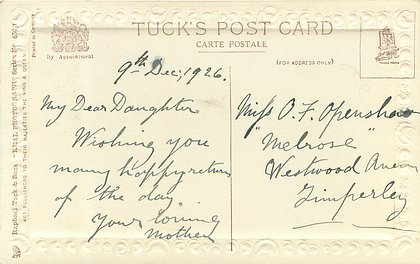 TUCK'S POST CARD
CARTE POSTALE
By Appointment
(FOR ADDRESS ONLY)
9th Dec; 1926.
My Dear Daughter
Wishing you
many happy returns
of the day
Your loving
Mother
Miss O. F. Openshaw
"Melrose"
Westwood Avenue
Timperley
Raphael Tuck & Sons
ART PUBLISHERS TO THEIR MAJESTIES THE KING & QUEEN